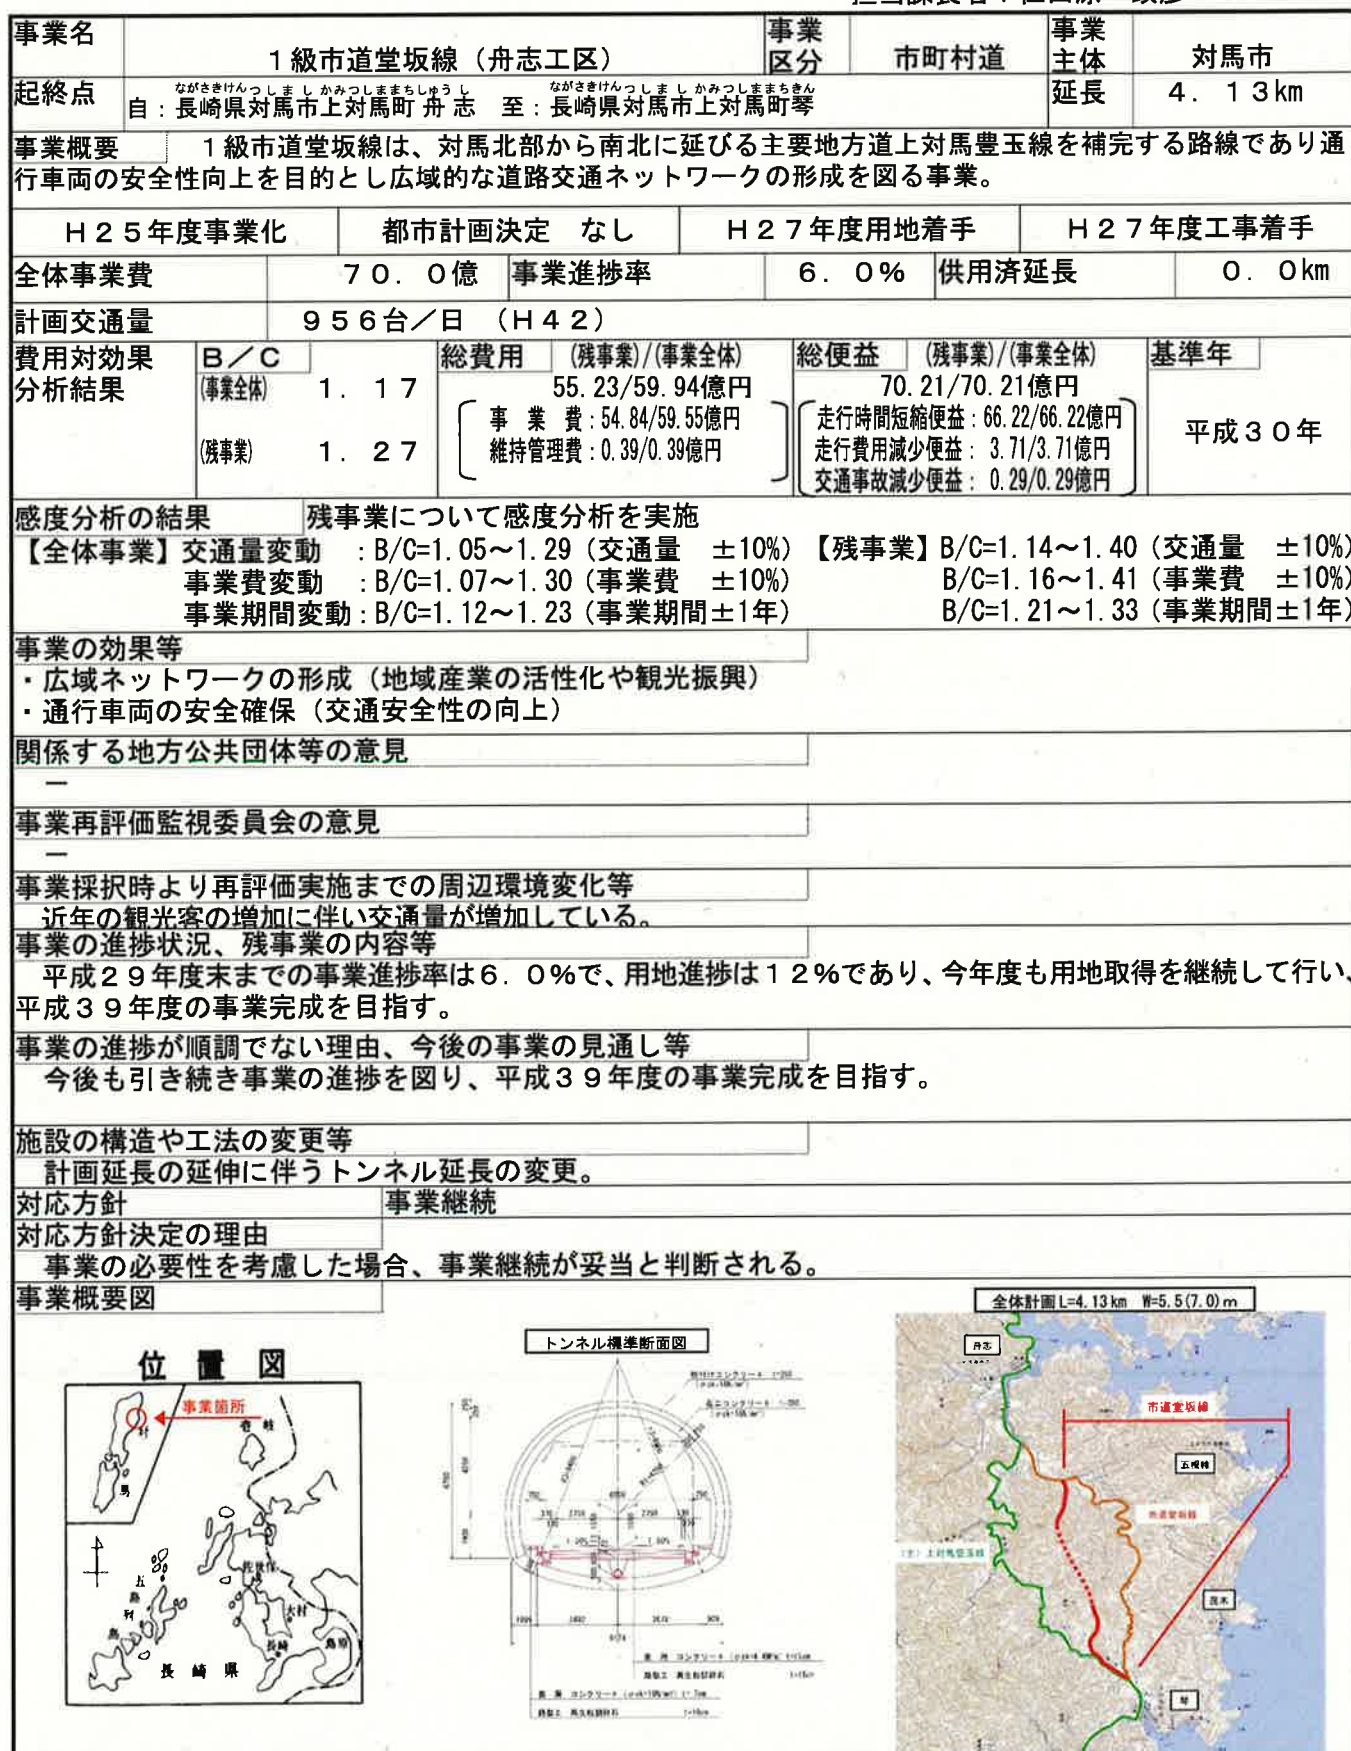 事業名
１級市道堂坂線（舟志工区）
事業
区分
市町村道
事業
主体
対馬市
起終点
ながさきけんつしましかみつしままちしゅうし
ながさきけんつしましかみつしままちきん
自：長崎県対馬市上対馬町舟志　至：長崎県対馬市上対馬町琴
延長
４．１３km
事業概要　１級市道堂坂線は、対馬北部から南北に延びる主要地方道上対馬豊玉線を補完する路線であり通
行車両の安全性向上を目的とし広域的な道路交通ネットワークの形成を図る事業。
Ｈ２５年度事業化　都市計画決定　なし　Ｈ２７年度用地着手　Ｈ２７年度工事着手
全体事業費　７０．０億　事業進捗率　６．０％　供用済延長　０．０km
計画交通量　９５６台／日（Ｈ４２）
費用対効果
分析結果
Ｂ／Ｃ
(事業全体)　１．１７
(残事業)　１．２７
総費用　(残事業)/(事業全体)
55.23/59.94億円
事業費：54.84/59.55億円
維持管理費：0.39/0.39億円
総便益　(残事業)/(事業全体)
70.21/70.21億円
走行時間短縮便益：66.22/66.22億円
走行費用減少便益：3.71/3.71億円
交通事故減少便益：0.29/0.29億円
基準年
平成３０年
感度分析の結果　残事業について感度分析を実施
【全体事業】交通量変動　：B/C=1.05～1.29（交通量　±10%）【残事業】B/C=1.14～1.40（交通量　±10%）
事業費変動　：B/C=1.07～1.30（事業費　±10%）　B/C=1.16～1.41（事業費　±10%）
事業期間変動：B/C=1.12～1.23（事業期間±1年）　B/C=1.21～1.33（事業期間±1年）
事業の効果等
・広域ネットワークの形成（地域産業の活性化や観光振興）
・通行車両の安全確保（交通安全性の向上）
関係する地方公共団体等の意見
―
事業再評価監視委員会の意見
―
事業採択時より再評価実施までの周辺環境変化等
近年の観光客の増加に伴い交通量が増加している。
事業の進捗状況、残事業の内容等
平成２９年度末までの事業進捗率は６．０％で、用地進捗は１２％であり、今年度も用地取得を継続して行い、
平成３９年度の事業完成を目指す。
事業の進捗が順調でない理由、今後の事業の見通し等
今後も引き続き事業の進捗を図り、平成３９年度の事業完成を目指す。
施設の構造や工法の変更等
計画延長の延伸に伴うトンネル延長の変更。
対応方針　事業継続
対応方針決定の理由
事業の必要性を考慮した場合、事業継続が妥当と判断される。
事業概要図
位置図
事業箇所
対
馬
壱岐
五
島
列
島
佐世保
大村
長崎
島原
長崎県
トンネル標準断面図
全体計画 L=4.13km　W=5.5(7.0)m
舟志
市道堂坂線
五根緒
市道堂坂線
（主）上対馬豊玉線
茂木
琴